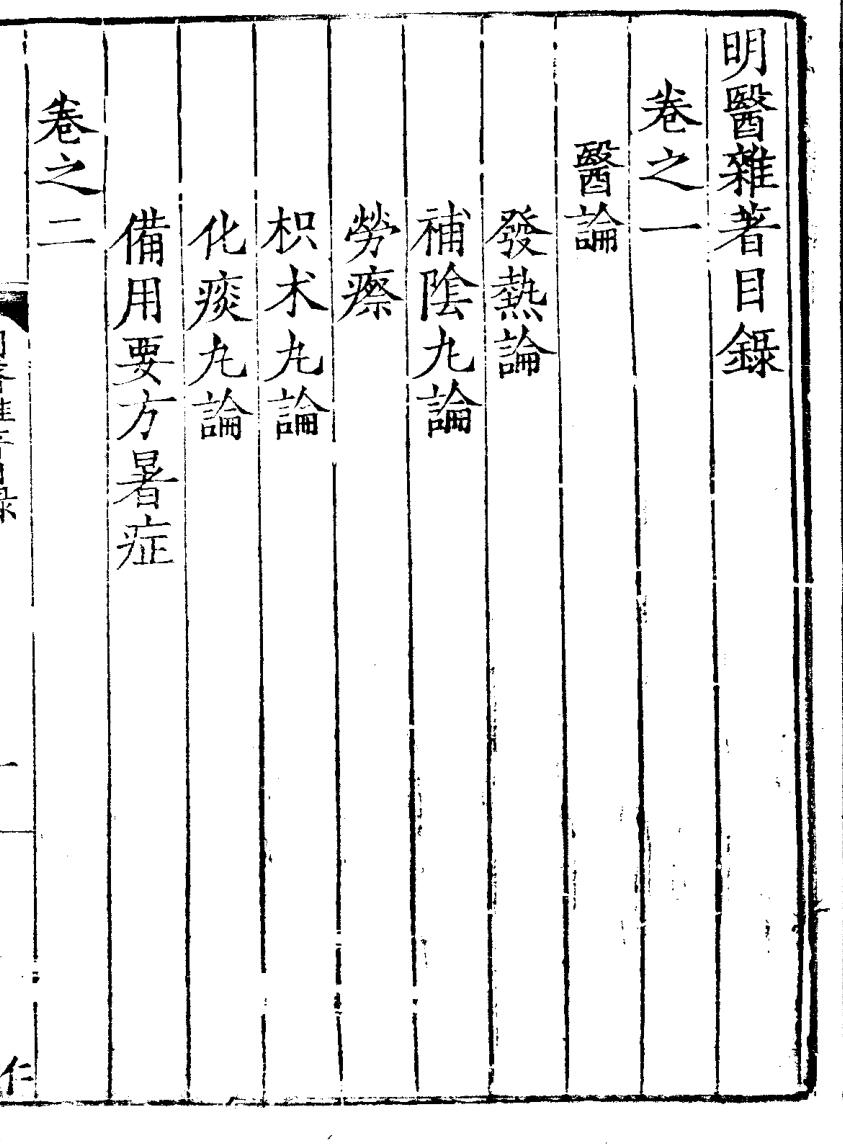 明醫雜著目錄
卷之一
醫論
發熱論
補陰丸論
勞瘵
枳朮丸論
化痰丸論
備用要方暑症
卷之二
一
仁